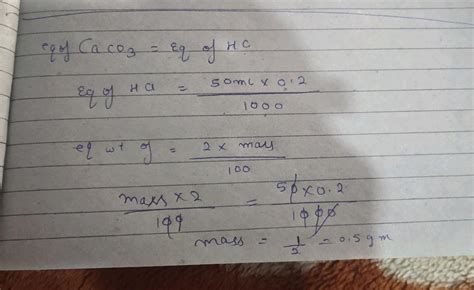 eq of CaCO3 = Eq of HC
Eq of HCl = 50ml x 0.2 / 1000
eq wt of = 2 x mass / 100
mass x 2 / 100 = 50 x 0.2 / 1000
mass = 1/2 = 0.5 gm